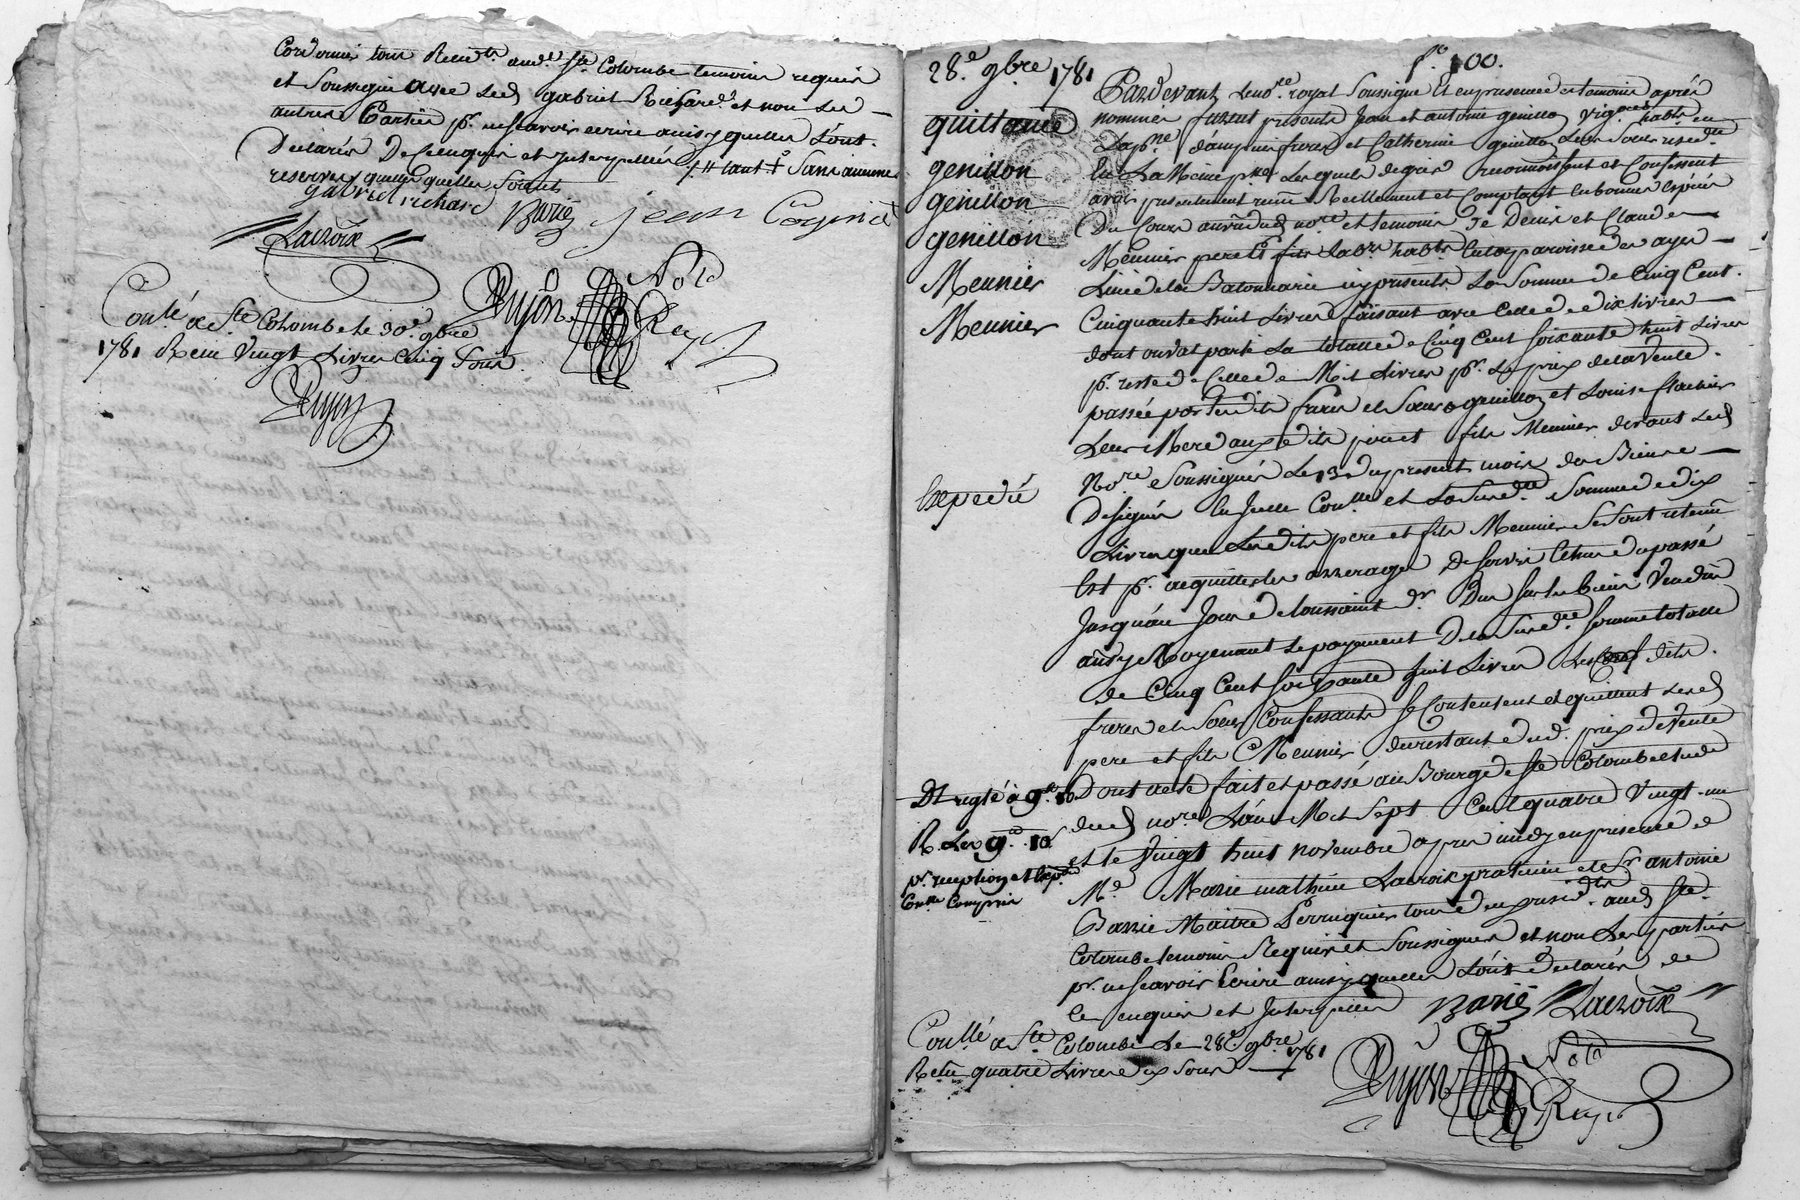 Cordonnier tous Residts. aud. Ste Colombe temoins requis
et Soussignés avec Led. gabriel Richard et non Les
autres Parties pr. ne scavoir ecrire ainsy quelles L'ont
Declarés De ce enquis et Interpellés /# tant + Sans aucune
reserve quelles quelles soient
gabriel richard Barié jean
Lacroix
Dujon Note Royal
Conlé a Ste Colombe le 30e 9bre
1781 Recu Vingt Livres Cinq Sous
Dujon
fo. 100.
28.e 9bre 1781
quittance
genillon
genillon
genillon
Meunier
Meunier
Expedié
Pardevant Le nore royal Soussigné Et en presence des temoins après
nommés furent presents Jean et antoine genillon vignerons habts. en
La pse d'ampuis freres et Catherine genillon Leur Soeur resdte
En La Même pse Lesquels de gré reconnoissent et Confessent
avoir presentement recu Reellement et Comptant en bonnes especes
Du Cours au vû dud. nore et temoins De Denis et Claude
Meunier pere et fils Labrs. habts. en paroisse des ayes
Lieu de la Batonnarie icy presents La Somme de Cinq Cent
Cinquante huit Livres faisant avec Celle de dix Livres
dont on va parler La totalle de Cinq Cent soixante huit Livres
pr. reste de Celle de Mil Livres pr. Le prix de la Vente
passée par Lesdits freres et Soeur genillon et Louise
Leur Mere auxdits pere et fils Meunier devant Led.
Nore Soussigné Le 13 du present mois des Biens
Designés En Icelle Conllée et La Susdte Somme de dix
Livres que Lesdits pere et fils Meunier Se Sont retenu
Est pr. acquitter les arrerages De servis Echus du passé
Jusqu'au Jour de toussaint dr. Dus sur les biens Vendus
ainsy Moyenant Le payement De la Susdte Somme totalle
de Cinq Cent soixante huit Livres Lesdits
freres et Soeur Confessants se Contentent et quittent Lesd.
pere et fils Meunier du restant dud. prix de Vente
Dont acte fait et passé au Bourg de Ste Colombe etude
dud. nore L'an Mil Sept Cent quatre Vingt un
et le Vingt huit novembre apres midy en presence de
Me. Marie mathieu Lacroix praticien et Sr antoine
Barrie Maitre Perruquier tous deux residts. aud. Ste
Colombe temoins Requis et Soussignés et non Les parties
pr. ne scavoir Ecrire ainsy quelles L'ont declarés de
Ce enquis et Interpellés Barié Lacroix
Dt reglé à 9# 10
R. Les 9# 10
pr. reception et Expedon
Conlle Compris
Conllé a Ste Colombe Le 28e 9bre 1781
Recu quatre Livres dix Sous
Dujon Note Royal